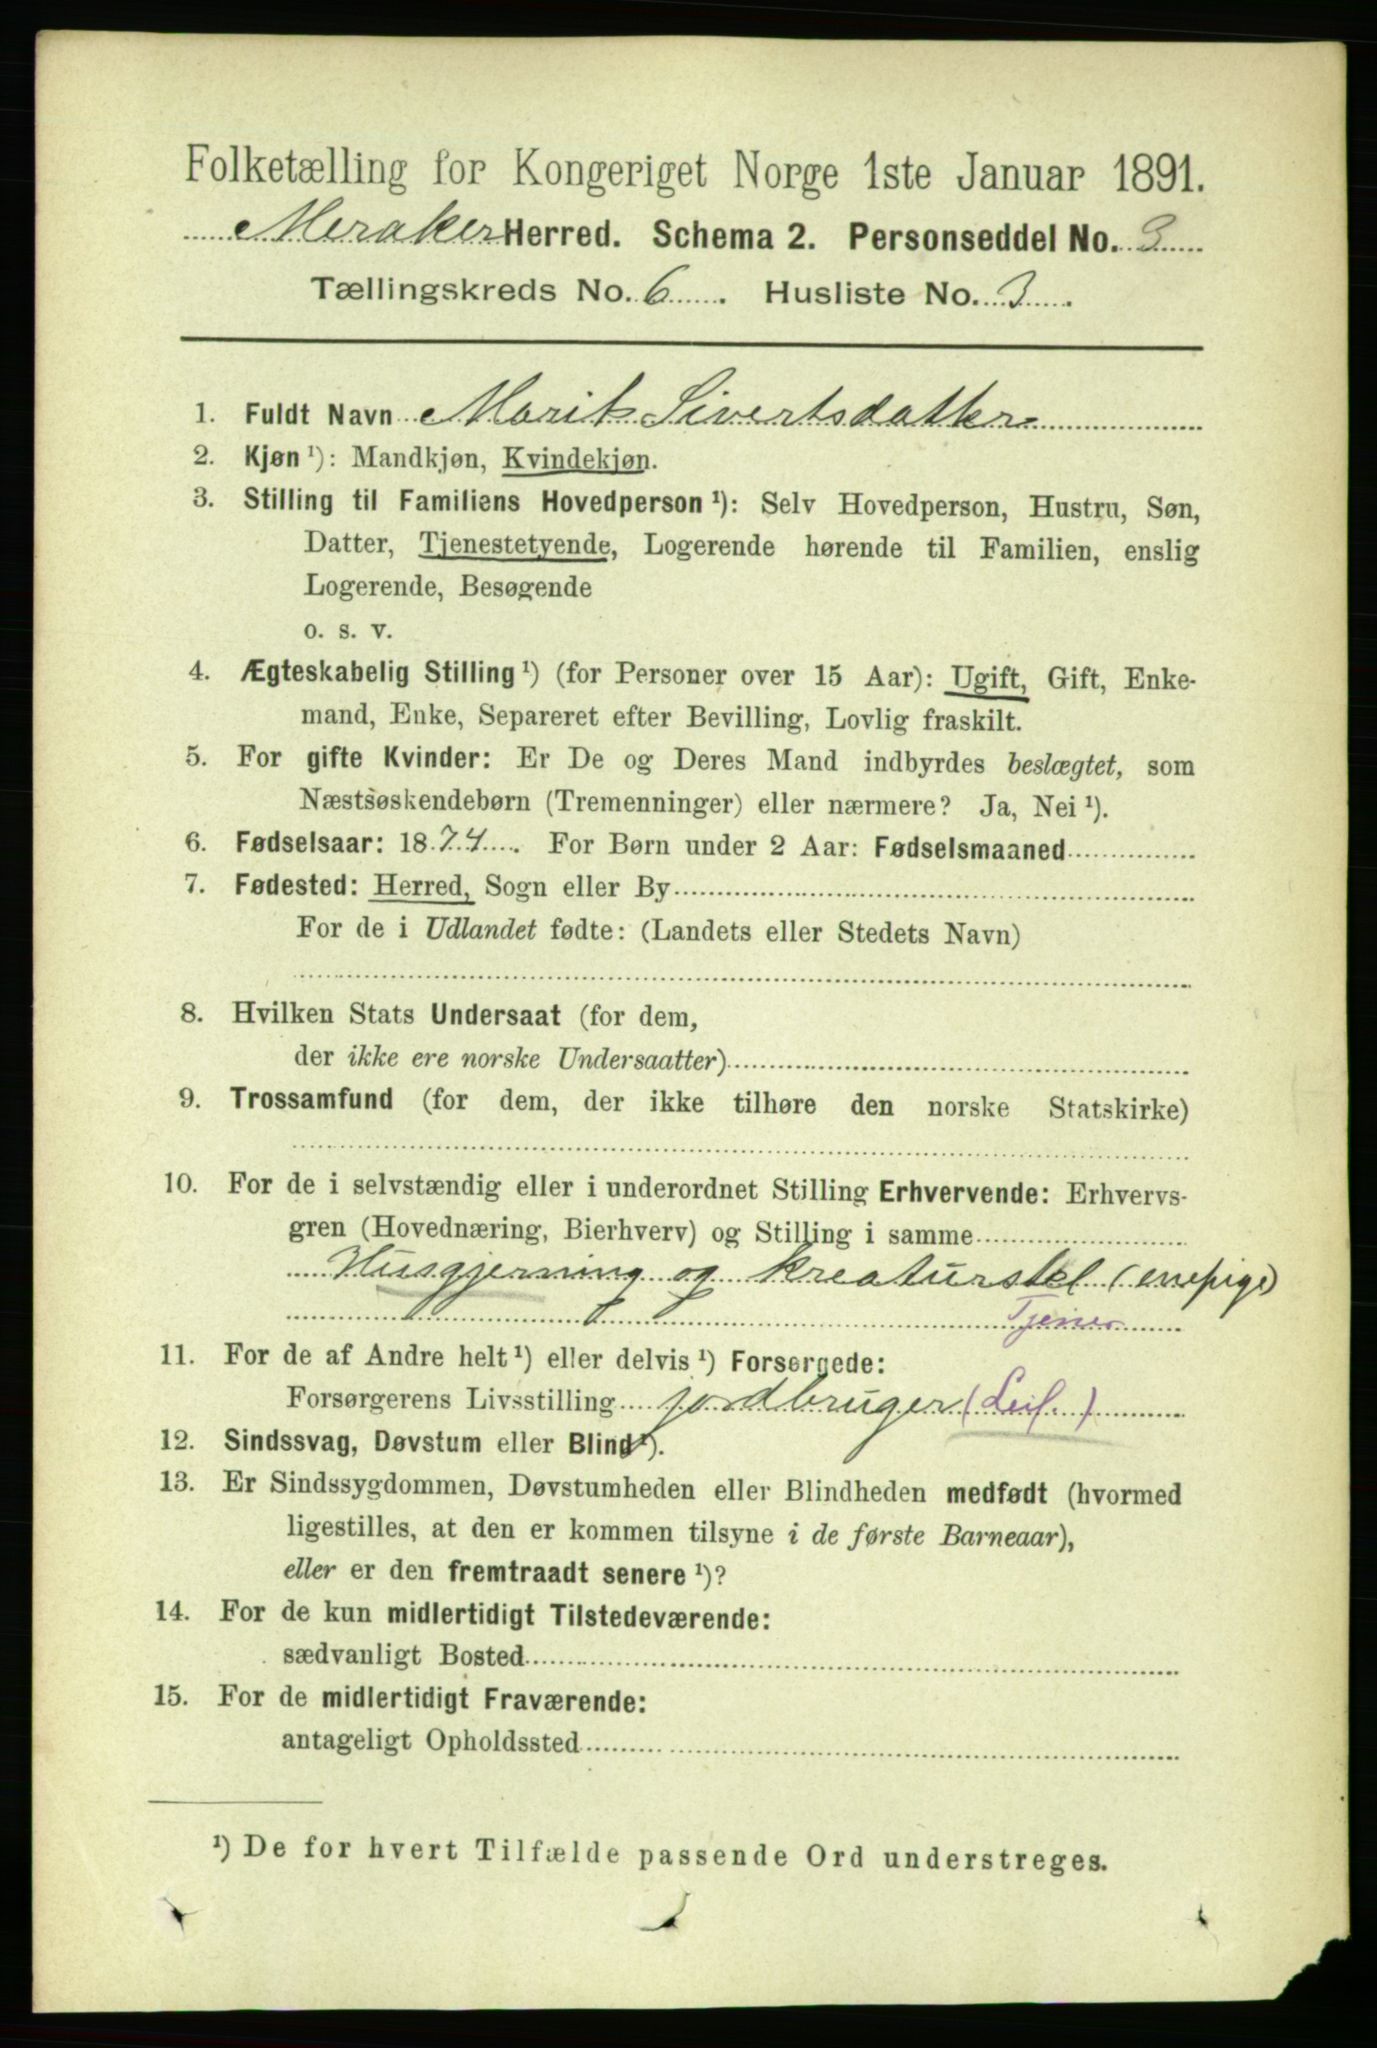 Folketælling for Kongeriget Norge 1ste Januar 1891.
Meraker Herred. Schema 2. Personseddel No. 3
Tællingskreds No. 6. Husliste No. 3.
1. Fuldt Navn Marit Sivertsdatter
2. Kjøn ¹): Mandkjøn, Kvindekjøn.
3. Stilling til Familiens Hovedperson ¹): Selv Hovedperson, Hustru, Søn,
Datter, Tjenestetyende, Logerende hørende til Familien, enslig
Logerende, Besøgende
o. s. v.
4. Ægteskabelig Stilling ¹) (for Personer over 15 Aar): Ugift, Gift, Enke-
mand, Enke, Separeret efter Bevilling, Lovlig fraskilt.
5. For gifte Kvinder: Er De og Deres Mand indbyrdes beslægtet, som
Næstsøskendebørn (Tremenninger) eller nærmere? Ja, Nei ¹).
6. Fødselsaar: 1874. For Børn under 2 Aar: Fødselsmaaned
7. Fødested: Herred, Sogn eller By
For de i Udlandet fødte: (Landets eller Stedets Navn)
8. Hvilken Stats Undersaat (for dem,
der ikke ere norske Undersaatter)
9. Trossamfund (for dem, der ikke tilhøre den norske Statskirke)
10. For de i selvstændig eller i underordnet Stilling Erhvervende: Erhvervs-
gren (Hovednæring, Bierhverv) og Stilling i samme
Husgjerning og kreaturstel (enepige)
Tjener
11. For de af Andre helt ¹) eller delvis ¹) Forsørgede:
Forsørgerens Livsstilling jordbruger (Leil.)
12. Sindssvag, Døvstum eller Blind ¹).
13. Er Sindssygdommen, Døvstumheden eller Blindheden medfødt (hvormed
ligestilles, at den er kommen tilsyne i de første Barneaar),
eller er den fremtraadt senere ¹)?
14. For de kun midlertidigt Tilstedeværende:
sædvanligt Bosted
15. For de midlertidigt Fraværende:
antageligt Opholdssted
¹) De for hvert Tilfælde passende Ord understreges.